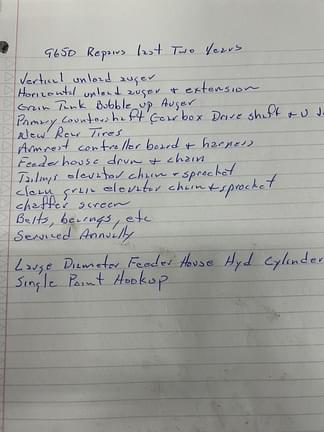 9650 Repairs last Two Years
Vertical unload auger
Horizontal unload auger + extension
Grain Tank Bubble up Auger
Primary Countershaft Gearbox Drive shaft + U J
New Rear Tires
Armrest controller board + harness
Feederhouse drum + chain
Tailings elevator chain + sprocket
clean grain elevator chain + sprocket
chaffer screen
Belts, bearings, etc
Serviced Annually
Large Diameter Feeder House Hyd Cylinder
Single Point Hookup